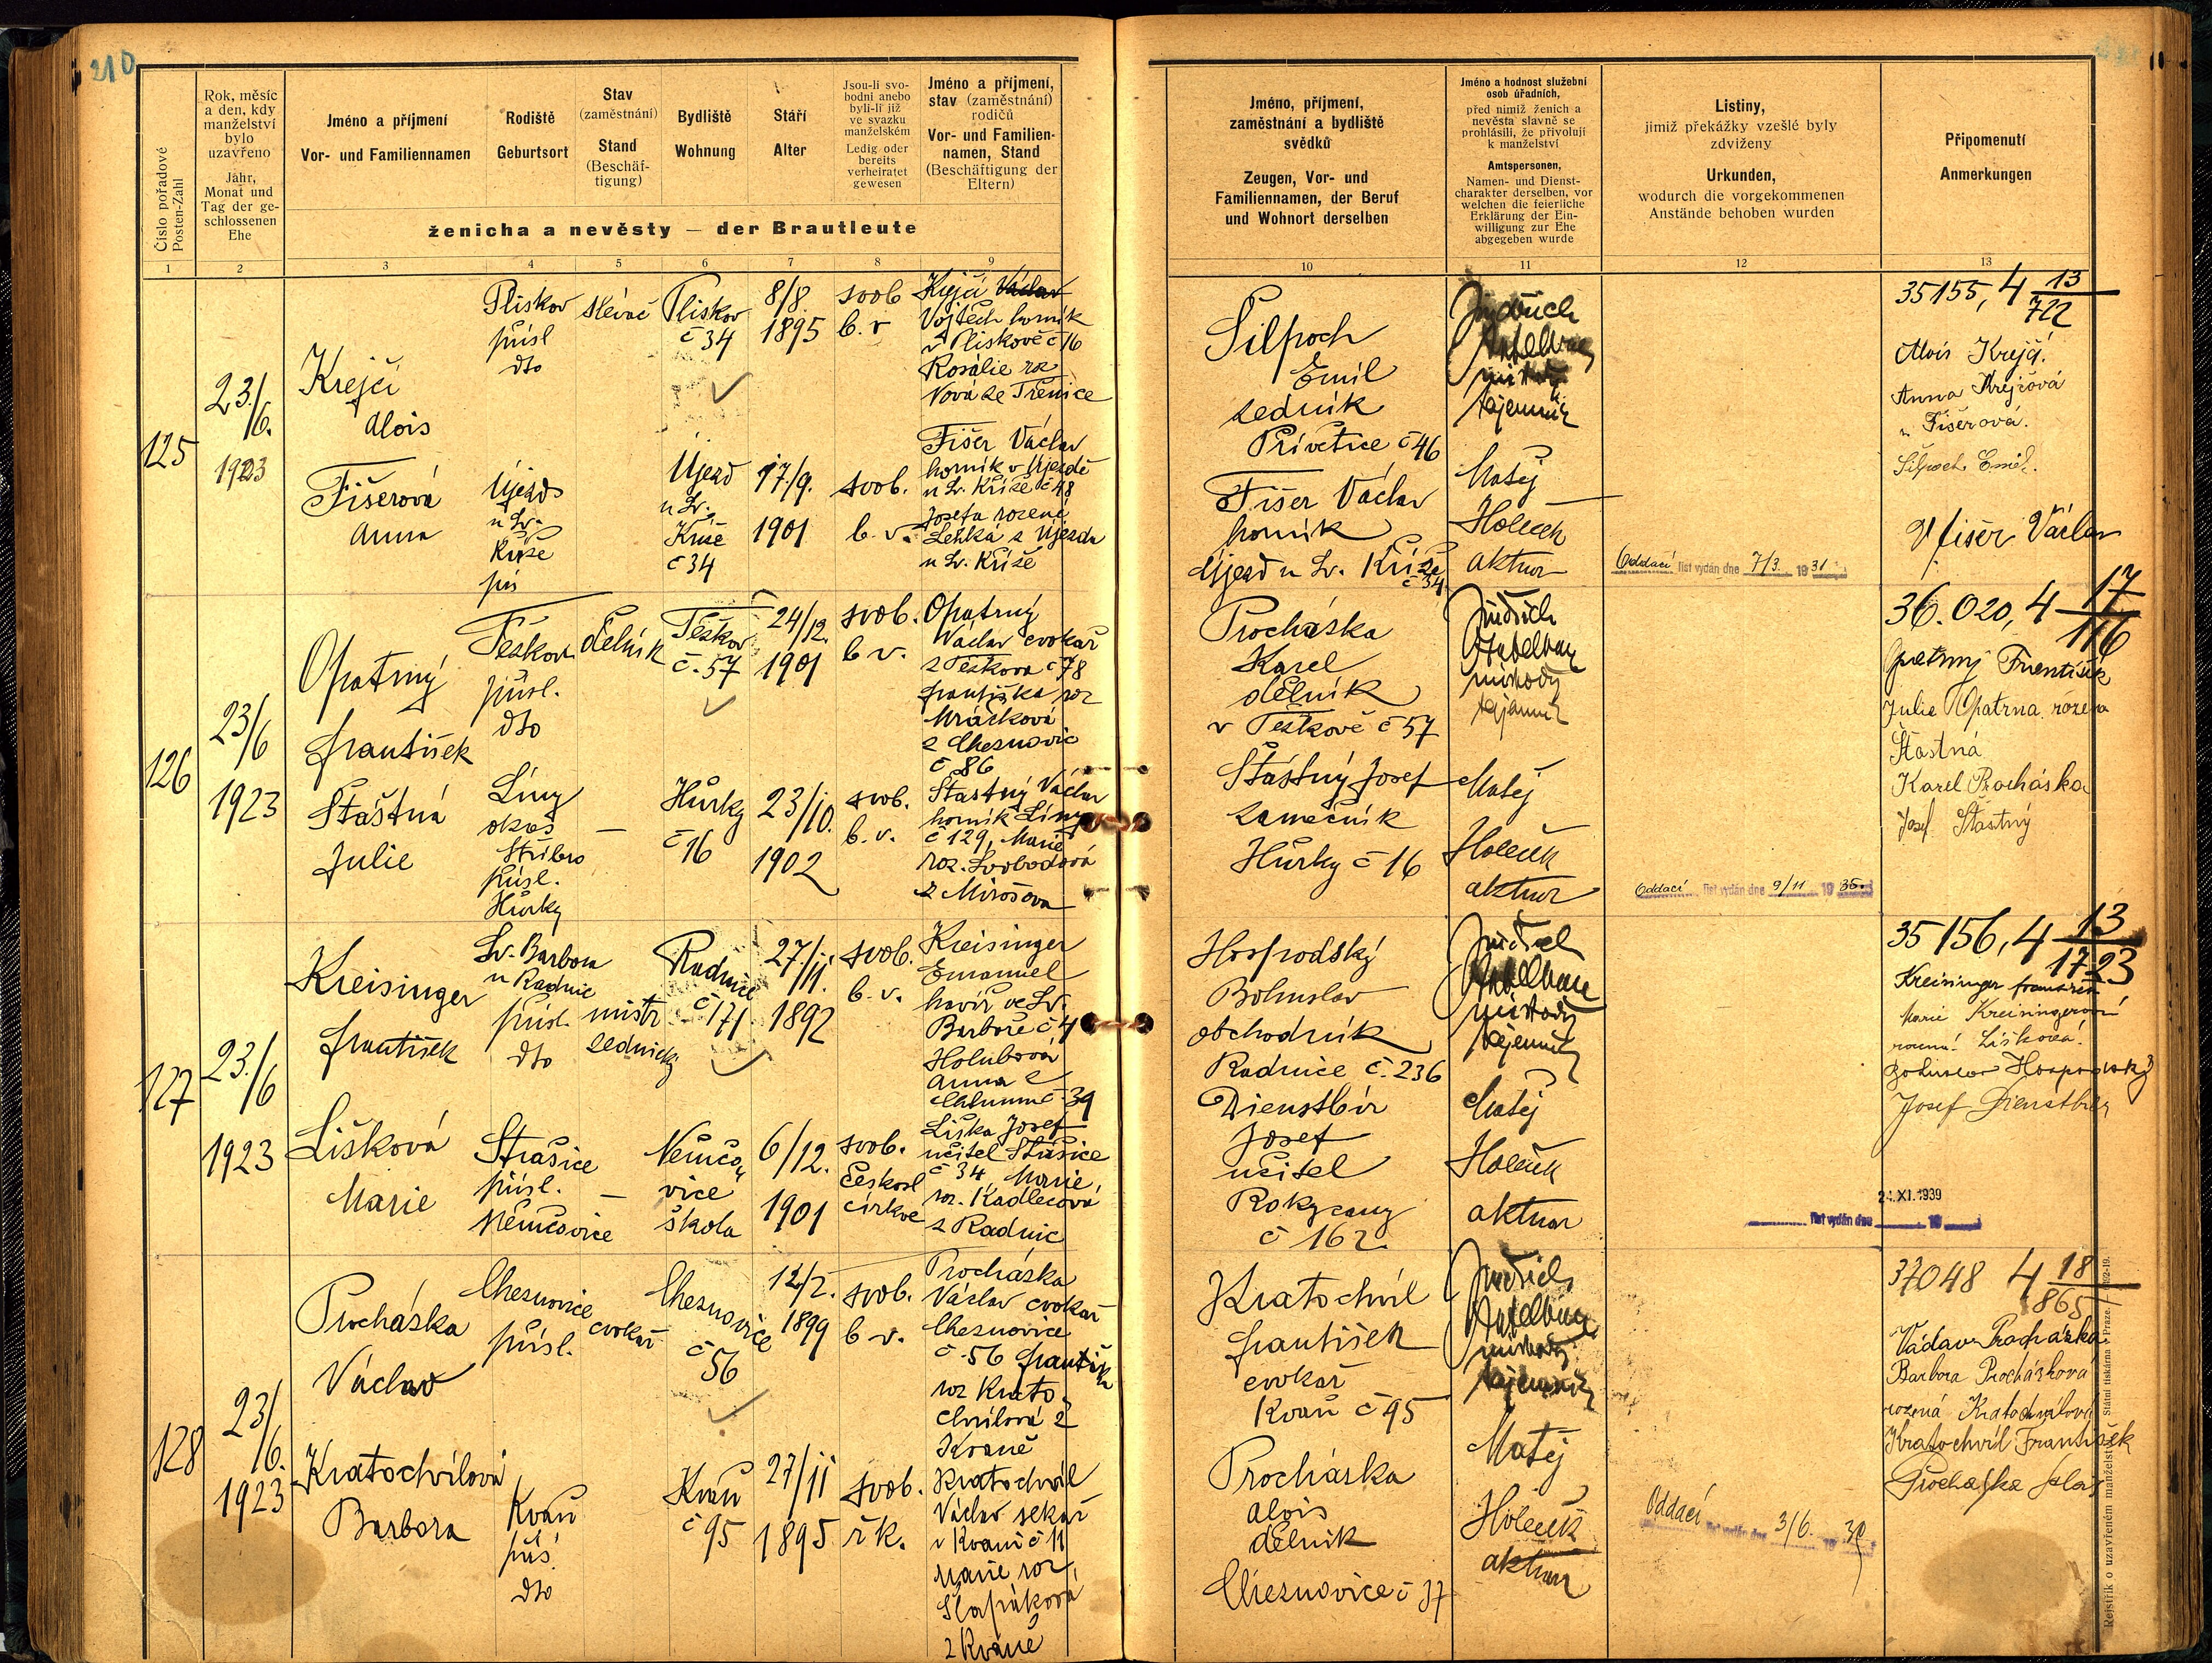 210
Číslo pořadové
Posten-Zahl
Rok, měsíc
a den, kdy
manželství
bylo
uzavřeno
Jahr,
Monat und
Tag der ge-
schlossenen
Ehe
Jméno a příjmení
Vor- und Familiennamen
Rodiště
Geburtsort
Stav
(zaměstnání)
Stand
(Beschäf-
tigung)
Bydliště
Wohnung
Stáří
Alter
Jsou-li svo-
bodni anebo
byli-li již
ve svazku
manželském
Ledig oder
bereits
verheiratet
gewesen
Jméno a příjmení,
stav (zaměstnání)
rodičů
Vor- und Familien-
namen, Stand
(Beschäftigung der
Eltern)
ženicha a nevěsty — der Brautleute
1 2 3 4 5 6 7 8 9
Jméno, příjmení,
zaměstnání a bydliště
svědků
Zeugen, Vor- und
Familiennamen, der Beruf
und Wohnort derselben
Jméno a hodnost služební
osob úřadních,
před nimiž ženich a
nevěsta slavně se
prohlásili, že přivolují
k manželství
Amtspersonen,
Namen- und Dienst-
charakter derselben, vor
welchen die feierliche
Erklärung der Ein-
willigung zur Ehe
abgegeben wurde
Listiny,
jimiž překážky vzešlé byly
zdviženy
Urkunden,
wodurch die vorgekommenen
Anstände behoben wurden
Připomenutí
Anmerkungen
10 11 12 13
125
23./6.
1923
Krejčí
Alois
Pliskov
přísl
dto
slévač
Pliskov
č 34
8/8.
1895
svob
b. v
Krejčí Václav
Vojtěch horník
v Pliskově č 16
Rosálie roz
Nová ze Třenice
Fišerová
Anna
Újezd
u Sv.
Kříže
Újezd
u Sv.
Kříže
č 34
17./9.
1901
svob.
b. v.
Fišer Václav
horník v Újezdě
u Sv. Kříže č 48
Josefa rozené
z Újezda
u Sv. Kříže
Silpoch
Emil
zedník
Přívětice č 46
Fišer Václav
horník
Újezd u Sv. Kříže
č 34
Jindřich
místody
tajemník
Matěj
Holeček
aktuar
Oddací list vydán dne 7/3. 1931
35155, 4 13/722
Alois Krejčí
Anna Krejčová
r. Fišerová.
Silpoch Emil.
Fišer Václav
126
23/6
1923
Opatrný
František
Těškov
přísl.
dto
dělník
Těškov
č. 57
24/12.
1901
svob.
b v.
Opatrný
Václav cvokař
z Těškova č 78
Františka roz
Mráčková
z Cheznovic
č 86
Šťastná
Julie
Líny
okres
Stříbro
přísl.
Hůrky
—
Hůrky
č 16
23/10.
1902
svob.
b. v.
Šťastný Václav
horník Líny
č 129, Marie
roz. Svobodová
z Mirošova
Procházka
Karel
dělník
v Těškově č 57
Šťastný Josef
zámečník
Hůrky č 16
Jindřich
místody
tajemník
Matěj
Holeček
aktuar
Oddací list vydán dne 9/11 1935.
36.020, 4 17/116
Opatrný František
Julie Opatrna rozena
Šťastná
Karel Procháska
Josef Šťastný
127
23./6
1923
Kreisinger
František
Sv. Barbora
u Radnic
přísl.
dto
mistr
zednický
Radnice
č 171
27./11.
1892
svob.
b. v.
Kreisinger
Emanuel
havíř ve Sv.
Barboře č 4
Holubová
Anna z
Chlumu č 39
Lišková
Marie
Strašice
přísl.
Němčovice
—
Němčo
vice
škola
6/12.
1901
svob.
českosl
církve
Liška Josef
učitel Strašice
č 34 Marie,
roz. Kadlecová
z Radnic
Hospodský
Bohuslav
obchodník
Radnice č. 236
Dienstbír
Josef
učitel
Rokycany
č 162.
Jindřich
místody
tajemník
Matěj
Holeček
aktuar
24.XI.1939
list vydán dne 19
35156, 4 13/1723
Kreisinger František
Marie Kreisingerová
rozená Lišková
Bohuslav Hospodský
Josef Dienstbír
128
23/6.
1923
Procházka
Václav
Cheznovice
přísl.
cvokař
Cheznovice
č 56
12/2.
1899
svob.
b v.
Procházka
Václav cvokař
Cheznovice
č. 56 Františka
roz Krato
chvílová z
Kvaně
Kratochvílová
Barbora
Kvaň
přís
dto
Kvaň
č 95
27/11
1895
svob.
řk.
Kratochvíl
Václav sekař
v Kvani č 11
Marie roz
Šlapáková
z Kvaně
Kratochvíl
František
cvokař
Kvaň č 95
Procházka
Alois
dělník
Cheznovice č 37
Jindřich
místody
tajemník
Matěj
Holeček
aktuar
Oddací list vydán dne 3/6. 19
37048 4 18/865
Václav Procházka
Barbora Procházková
rozená Kratochvílová
Kratochvíl František
Procházka Alois
Rejstřík o uzavřeném manželství. Státní tiskárna v Praze.